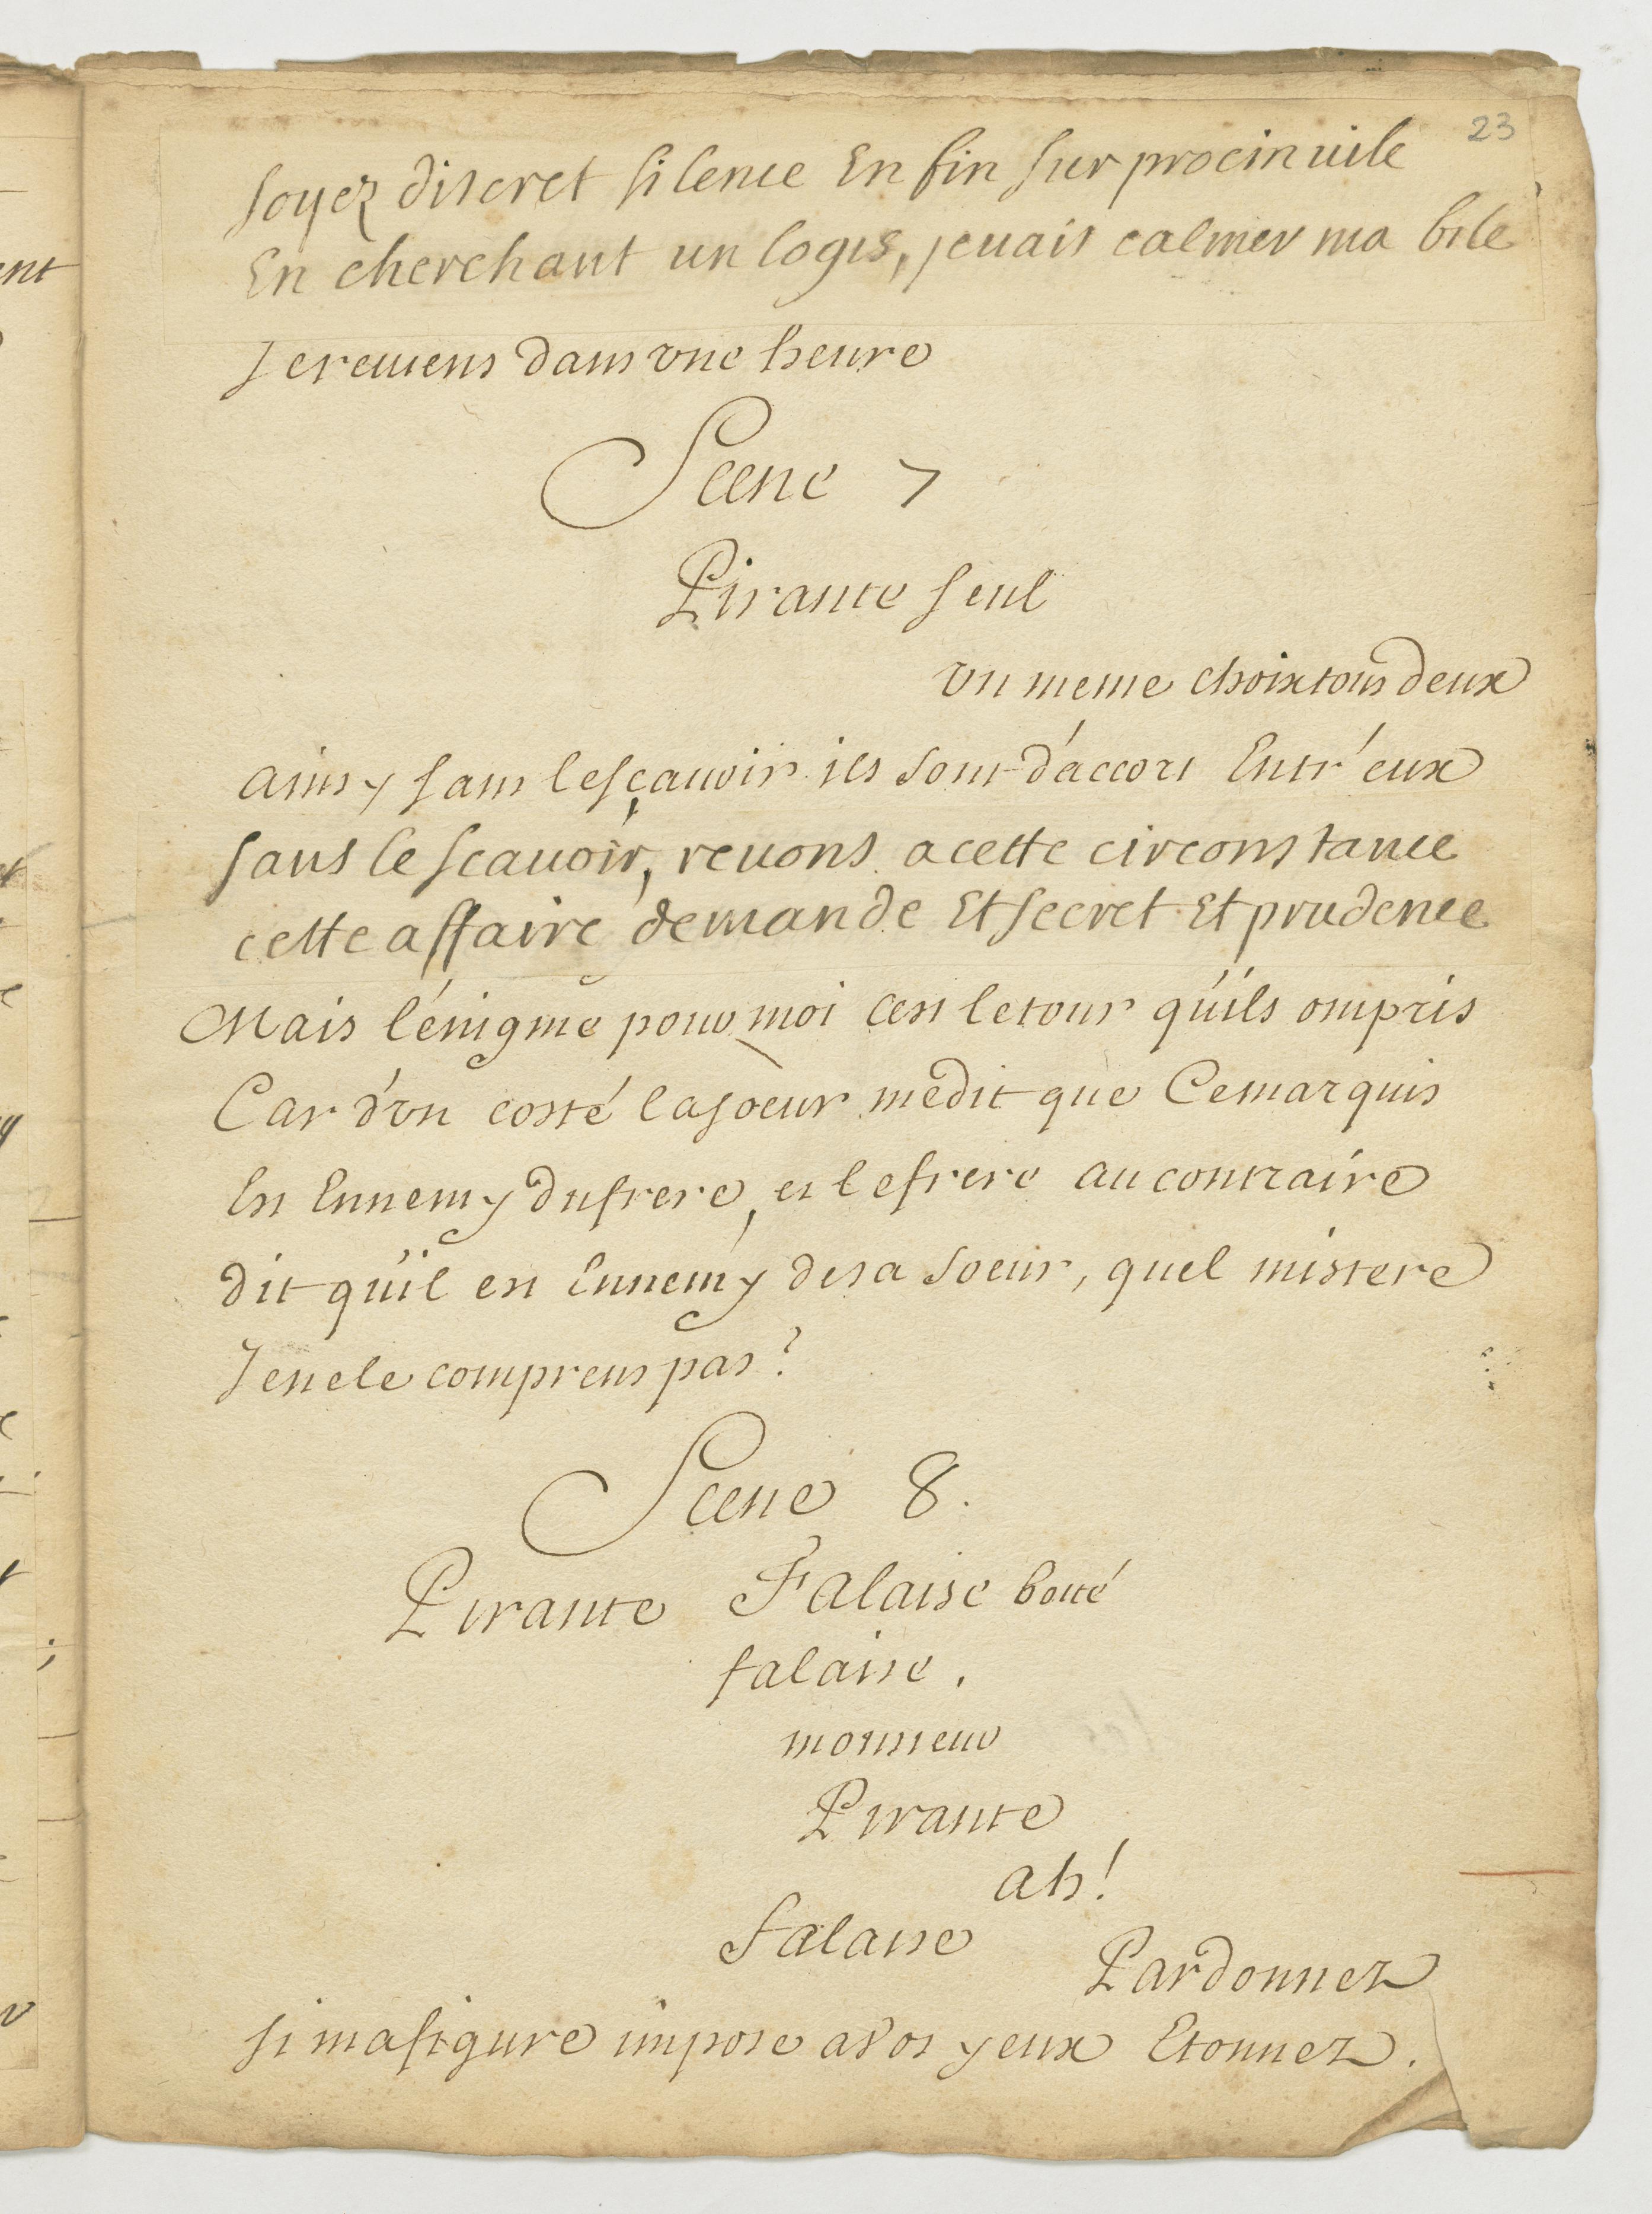 23
soyez discret silence En fin sur procinuile
En cherchant un logis, jeuais calmer ma bile
Jereuiens dans vne heure
Scene 7
Pirante seul
vn meme choix tous deux
ainsy sans lesçauoir ils sont d'accort Entr'eux
sans le scauoir, reuons a cette circonstance
cette affaire demande Et secret Et prudence
Mais l'énigme pour moi cest le tour qu'ils ont pris
Car d'vn costé la soeur me dit que Ce marquis
Est Ennemy du frere, et le frere au contraire
dit qu'il est Ennemy de sa soeur, quel mistere
Je ne le comprens pas?
Scene 8.
Pirante Falaise botté
falaise.
monsieur
Pirante
ah!
falaise
Pardonnez
si ma figure impose a vos yeux Etonnez.